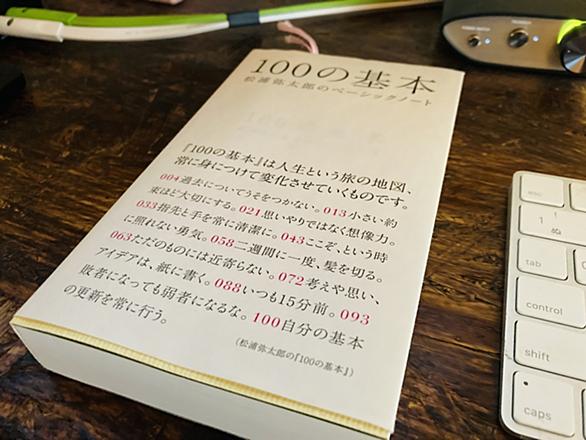 100の基本
松浦弥太郎のベーシックノート
『100の基本』は人生という旅の地図、
常に身につけて変化させていくものです。
004過去についてうそをつかない。013小さい約
束ほど大切にする。021思いやりではなく想像力。
033指先と手を常に清潔に。043ここぞ、という時
に照れない勇気。058二週間に一度、髪を切る。
063ただのものには近寄らない。072考えや思い、
アイデアは、紙に書く。088いつも15分前。093
敗者になっても弱者になるな。100自分の基本
の更新を常に行う。
(松浦弥太郎の『100の基本』)
esc
!
1 ぬ
tab
control
shift
caps